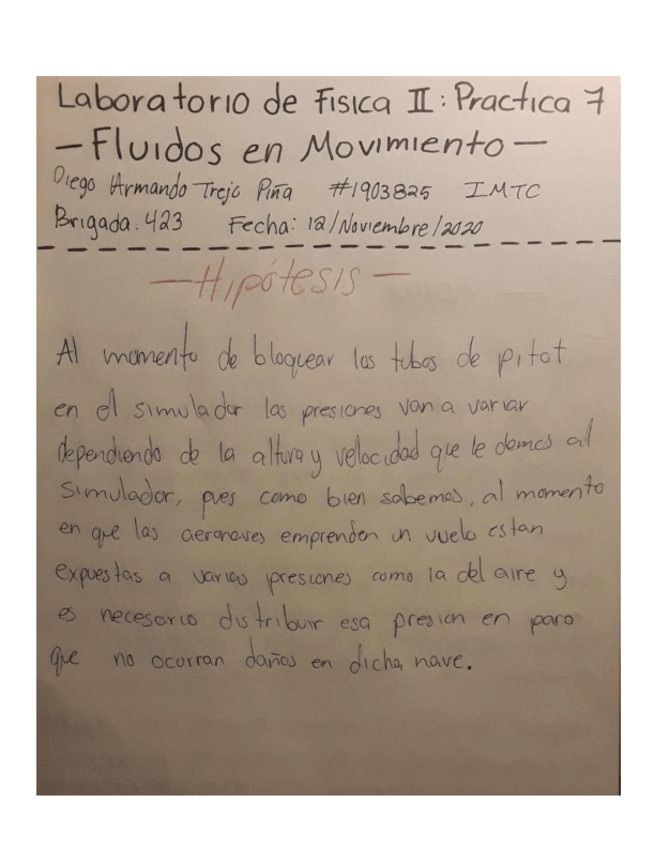 Laboratorio de Fisica II: Practica 7
- Fluidos en Movimiento -
Diego Armando Trejo Piña #1903825 IMTC
Brigada: 423 Fecha: 12/Noviembre/2020
- Hipótesis -
Al momento de bloquear los tubos de pitot
en el simulador las presiones van a variar
dependiendo de la altura y velocidad que le demos al
simulador, pues como bien sabemos, al momento
en que las aeronaves emprenden un vuelo estan
expuestas a varias presiones como la del aire y
es necesario distribuir esa presion en para
que no ocurran daños en dicha nave.